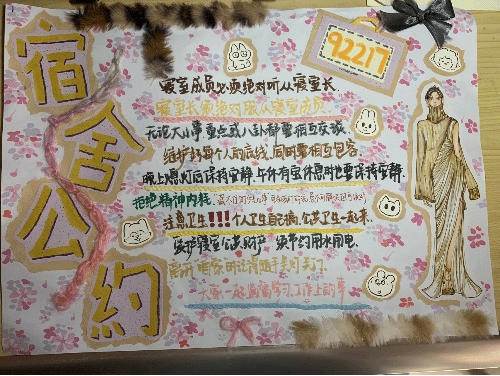 宿舍公约
92217
寝室成员必须绝对听从寝室长.
寝室长更绝对服从寝室成员
无论大小事 重点或八卦都要相互交谈.
维护好每个人的底线,同时要相互包容.
晚上熄灯后保持安静,午休有室休息时也要保持安静.
拒绝精神内耗.
注意卫生!!!个人卫生自己搞,公共卫生一起来.
爱护寝室公共财产 节约用水用电.